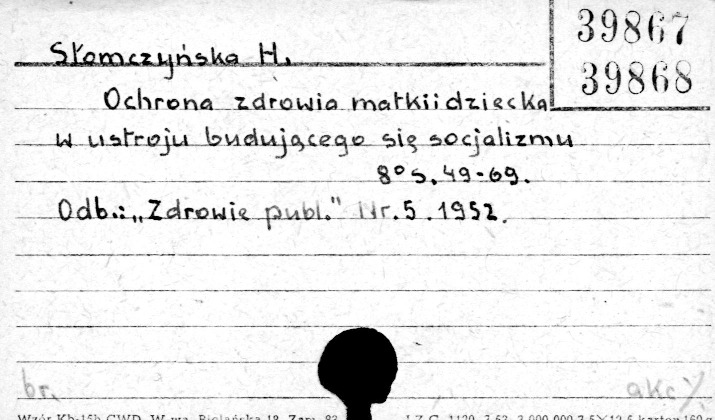 39867
39868
Słomczyńska H.
Ochrona zdrowia matki i dziecka
w ustroju budującego się socjalizmu
8° s. 49-69.
Odb.: „Zdrowie publ." Nr. 5. 1952.
br.
akc
Wzór Kb-15b CWD, W-wa, Bielańska 18, Zam. 83